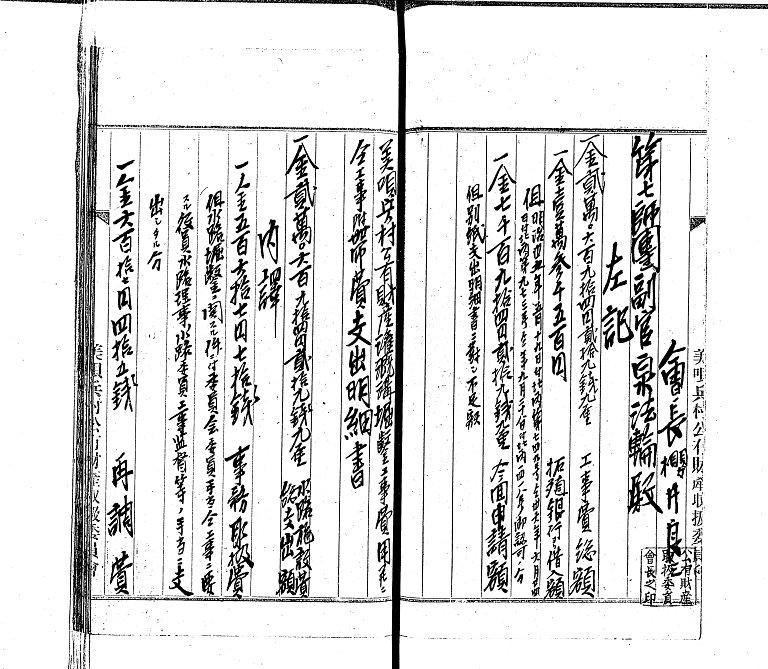 美唄兵村公有財産取扱委員會
會長 櫻井良三
公有財産取扱委員會長之印
第七師團副官 泉法輪殿
左記
一金貳萬〇六百九拾四円貳拾九銭九厘 工事費総額
一金壹萬参千五百円 拓殖銀行ゟ借額
一金七千百九拾四円貳拾九銭九厘 今回申請額
但別紙支出明細書ニ対シ不足額
美唄兵村公有財産灌漑溝堀鑿工事費用
仝工事附帯費支出明細書
一金貳萬〇六百九拾四円貳拾九銭九厘 水路施設費総支出額
内譯
一金五百六拾七円七拾銭 事務取扱費
但水路堀鑿ニ関スル件ニ付委員会委員手当仝工事ニ要
スル役員水路理事水路委員工事監督等ノ手当ニ支
出シタル分
一金六百拾円四拾五銭 再調費
美唄兵村公有財産取扱委員會